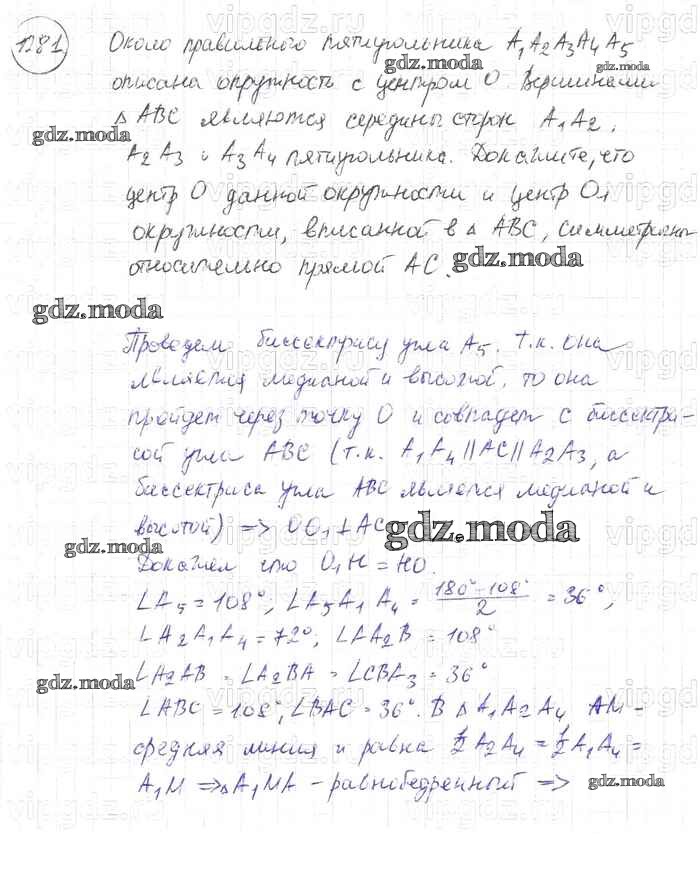 1281
Около правильного пятиугольника A₁A₂A₃A₄A₅
описана окружность с центром O. Вершинами
△ABC являются середины сторон A₁A₂,
A₂A₃ и A₃A₄ пятиугольника. Докажите, что
центр O данной окружности и центр O₁
окружности, вписанной в △ABC, симметричны
относительно прямой AC.
Проведем биссектрису угла A₅. Т.к. она
является медианой и высотой, то она
пройдет через точку O и совпадет с биссектри-
сой угла ABC (т.к. A₁A₄ || AC || A₂A₃, а
биссектриса угла ABC является медианой и
высотой) => OO₁ ⊥ AC
Докажем что O₁H = HO.
∠A₅ = 108°, ∠A₅A₁A₄ = (180° - 108°)/2 = 36°,
∠A₂A₁A₄ = 72°; ∠AA₂B = 108°
∠A₂AB = ∠A₂BA = ∠CBA₃ = 36°
∠ABC = 108°, ∠BAC = 36°. В △A₁A₂A₄ AM -
средняя линия и равна ½ A₂A₄ = ½ A₁A₄ =
A₁M => △A₁MA - равнобедренный =>
gdz.moda
gdz.moda
gdz.moda
gdz.moda
gdz.moda
gdz.moda
gdz.moda
gdz.moda
gdz.moda